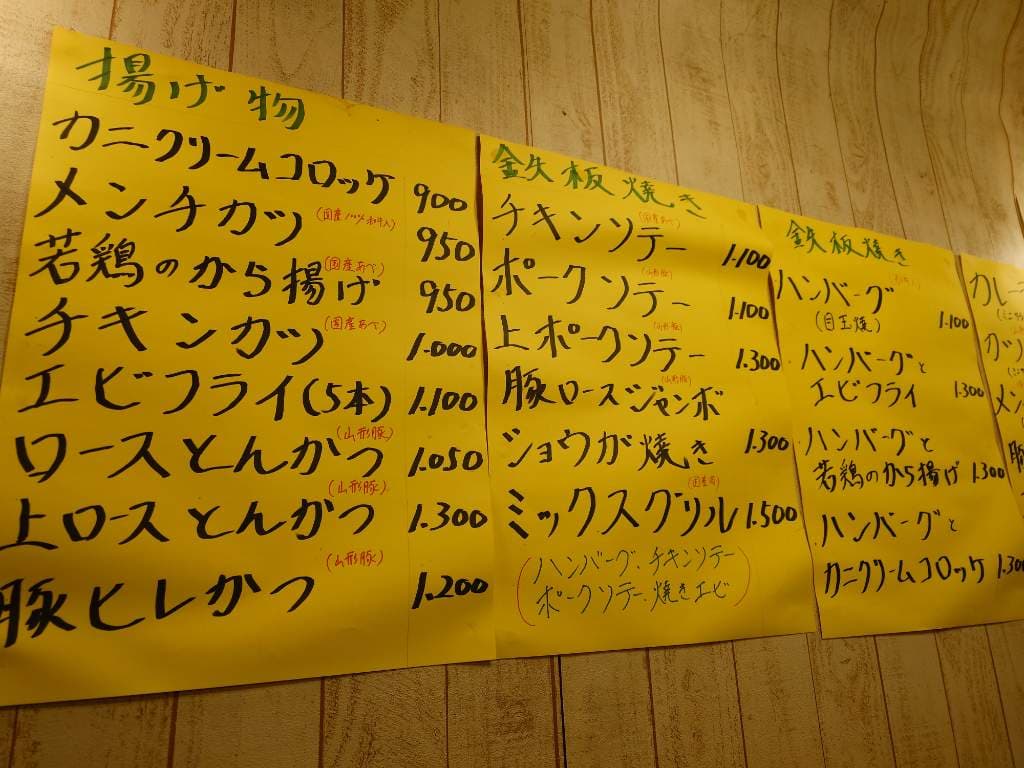 揚げ物
カニクリームコロッケ 900
メンチカツ 950
若鶏のから揚げ (国産あべ) 950
チキンカツ (国産あべ) 1.000
エビフライ(5本) 1.100
ロースとんかつ (山形豚) 1.050
上ロースとんかつ (山形豚) 1.300
豚ヒレかつ (山形豚) 1.200
鉄板焼き
チキンソテー (国産あべ) 1.100
ポークソテー (山形豚) 1.100
上ポークソテー (山形豚) 1.300
豚ロースジャンボ (山形豚)
ショウガ焼き 1.300
ミックスグリル 1.500
(ハンバーグ、チキンソテー
ポークソテー、焼きエビ)
鉄板焼き
ハンバーグ 1.100
(目玉焼)
ハンバーグと
エビフライ 1.300
ハンバーグと
若鶏のから揚げ 1.300
ハンバーグと
カニクリームコロッケ 1.300
カレー
カツ
メン
豚